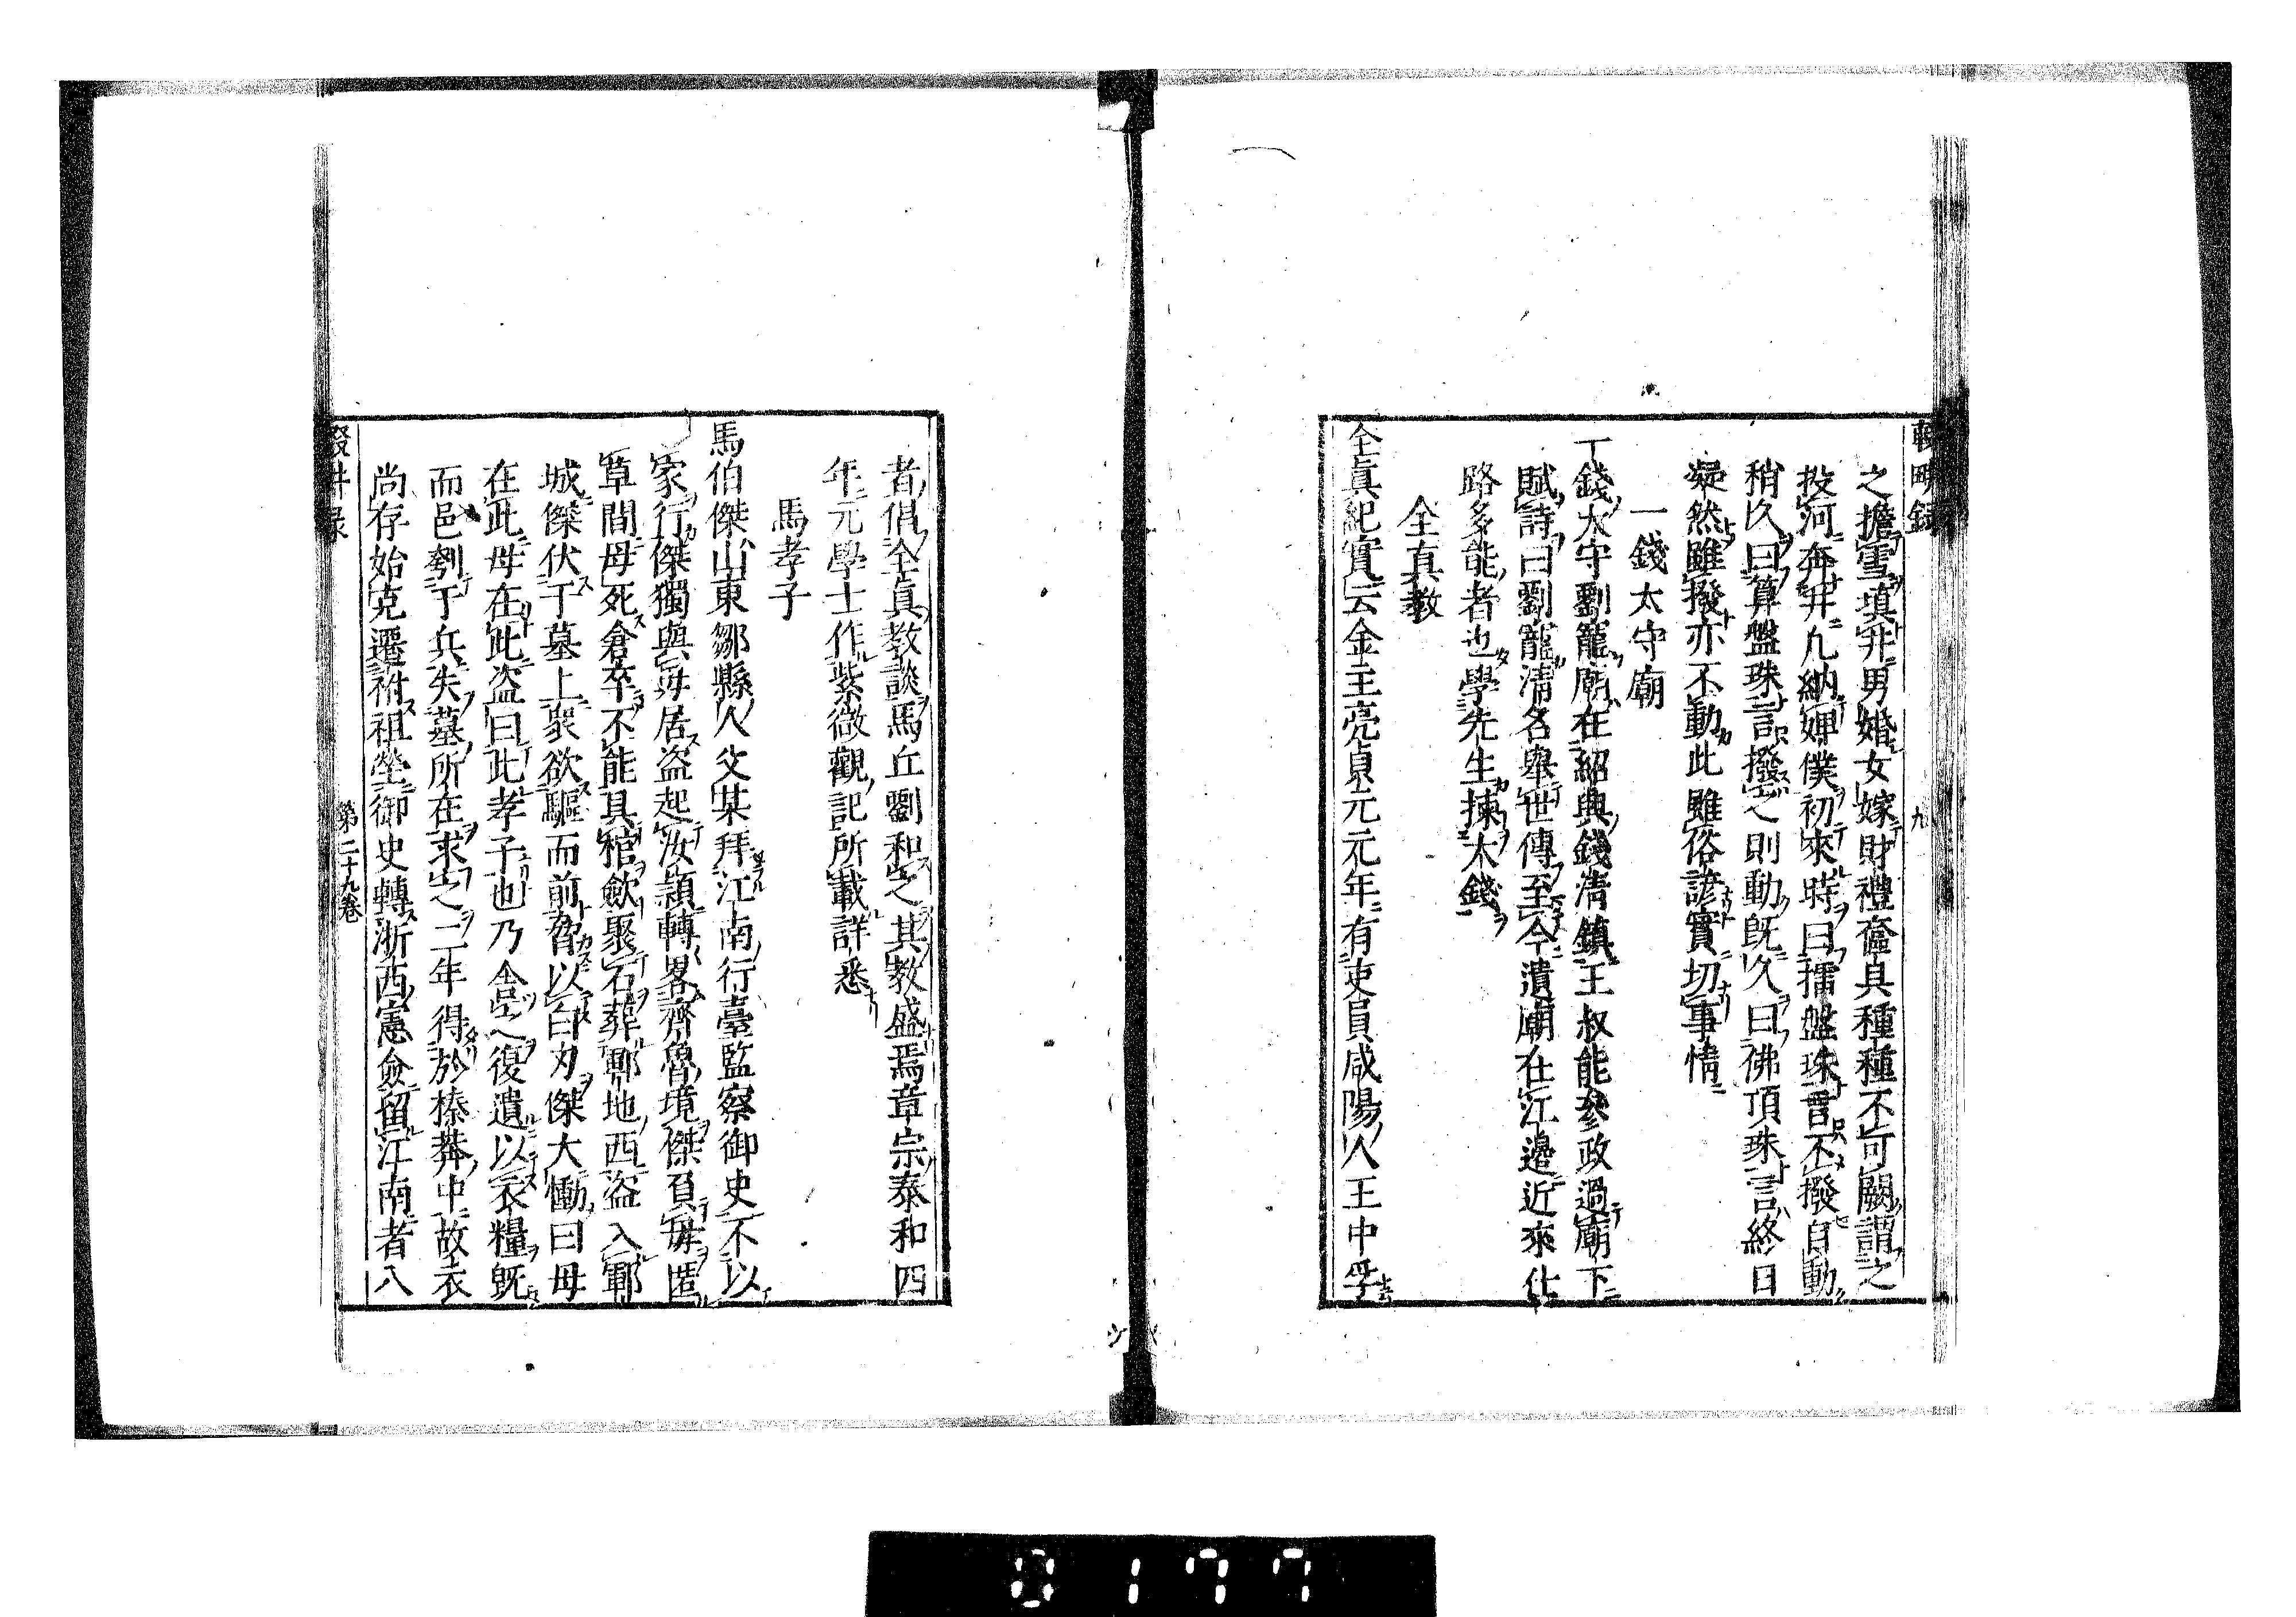 輟畊録 九
之擔雪填井男婚女嫁財禮奩具種種不可闕謂之
投河奔井凡納婢僕初來時曰擂盤珠言不撥自動
稍久曰算盤珠言撥之則動既久曰佛頂珠言終日
凝然雖撥亦不動此雖俗諺實切事情
一錢太守廟
一錢太守劉寵廟在紹興錢清鎮王叔能參政過廟下
賦詩曰劉寵清名舉世傳至今遺廟在江邊近來仕
路多能者也學先生揀大錢
全真教
全真紀實云金主亮貞元元年有吏員咸陽人王中孚
者倡全真教談馬丘劉和之其教盛焉章宗泰和四
年元學士作紫微觀記所載詳悉
馬孝子
馬伯傑山東鄒縣人父某拜江南行臺監察御史不以
家行傑獨與母居盗起汝穎轉畧齊魯境傑負母匿
草間母死倉卒不能具棺斂聚石葬鄆地西盗入鄆
城傑伏于墓上衆欲驅而前脅以白刃傑大慟曰母
在此母在此盗曰此孝子也乃舎之復遺以衣糧既
而邑剗于兵失墓所在求之二年得於榛莽中故衣
尚存始克遷祔祖塋御史轉浙西憲僉留江南者八
輟畊录 第二十九卷
0177